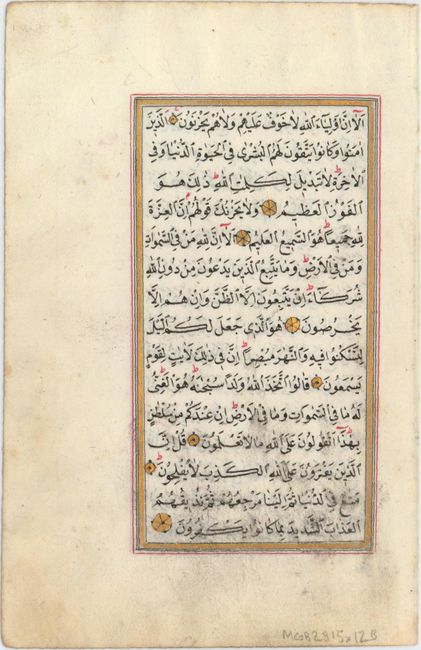 اَلَا اِنَّ اَوْلِيَاءَ اللهِ لَا خَوْفٌ عَلَيْهِمْ وَلَا هُمْ يَحْزَنُونَ الَّذِينَ
اٰمَنُوا وَكَانُوا يَتَّقُونَ لَهُمُ الْبُشْرٰى فِي الْحَيٰوةِ الدُّنْيَا وَفِي
الْاٰخِرَةِ لَا تَبْدِيلَ لِكَلِمَاتِ اللهِ ذٰلِكَ هُوَ
الْفَوْزُ الْعَظِيمُ وَلَا يَحْزُنْكَ قَوْلُهُمْ اِنَّ الْعِزَّةَ
لِلّٰهِ جَمِيعًا هُوَ السَّمِيعُ الْعَلِيمُ اَلَا اِنَّ لِلّٰهِ مَنْ فِي السَّمٰوَاتِ
وَمَنْ فِي الْاَرْضِ وَمَا يَتَّبِعُ الَّذِينَ يَدْعُونَ مِنْ دُونِ اللهِ
شُرَكَاءَ اِنْ يَتَّبِعُونَ اِلَّا الظَّنَّ وَاِنْ هُمْ اِلَّا
يَخْرُصُونَ هُوَ الَّذِي جَعَلَ لَكُمُ الَّيْلَ
لِتَسْكُنُوا فِيهِ وَالنَّهَارَ مُبْصِرًا اِنَّ فِي ذٰلِكَ لَاٰيَاتٍ لِقَوْمٍ
يَسْمَعُونَ قَالُوا اتَّخَذَ اللهُ وَلَدًا سُبْحَانَهُ هُوَ الْغَنِيُّ
لَهُ مَا فِي السَّمٰوَاتِ وَمَا فِي الْاَرْضِ اِنْ عِنْدَكُمْ مِنْ سُلْطَانٍ
بِهٰذَا اَتَقُولُونَ عَلَى اللهِ مَا لَا تَعْلَمُونَ قُلْ اِنَّ
الَّذِينَ يَفْتَرُونَ عَلَى اللهِ الْكَذِبَ لَا يُفْلِحُونَ
مَتَاعٌ فِي الدُّنْيَا ثُمَّ اِلَيْنَا مَرْجِعُهُمْ ثُمَّ نُذِيقُهُمُ
الْعَذَابَ الشَّدِيدَ بِمَا كَانُوا يَكْفُرُونَ
MG82815x12B